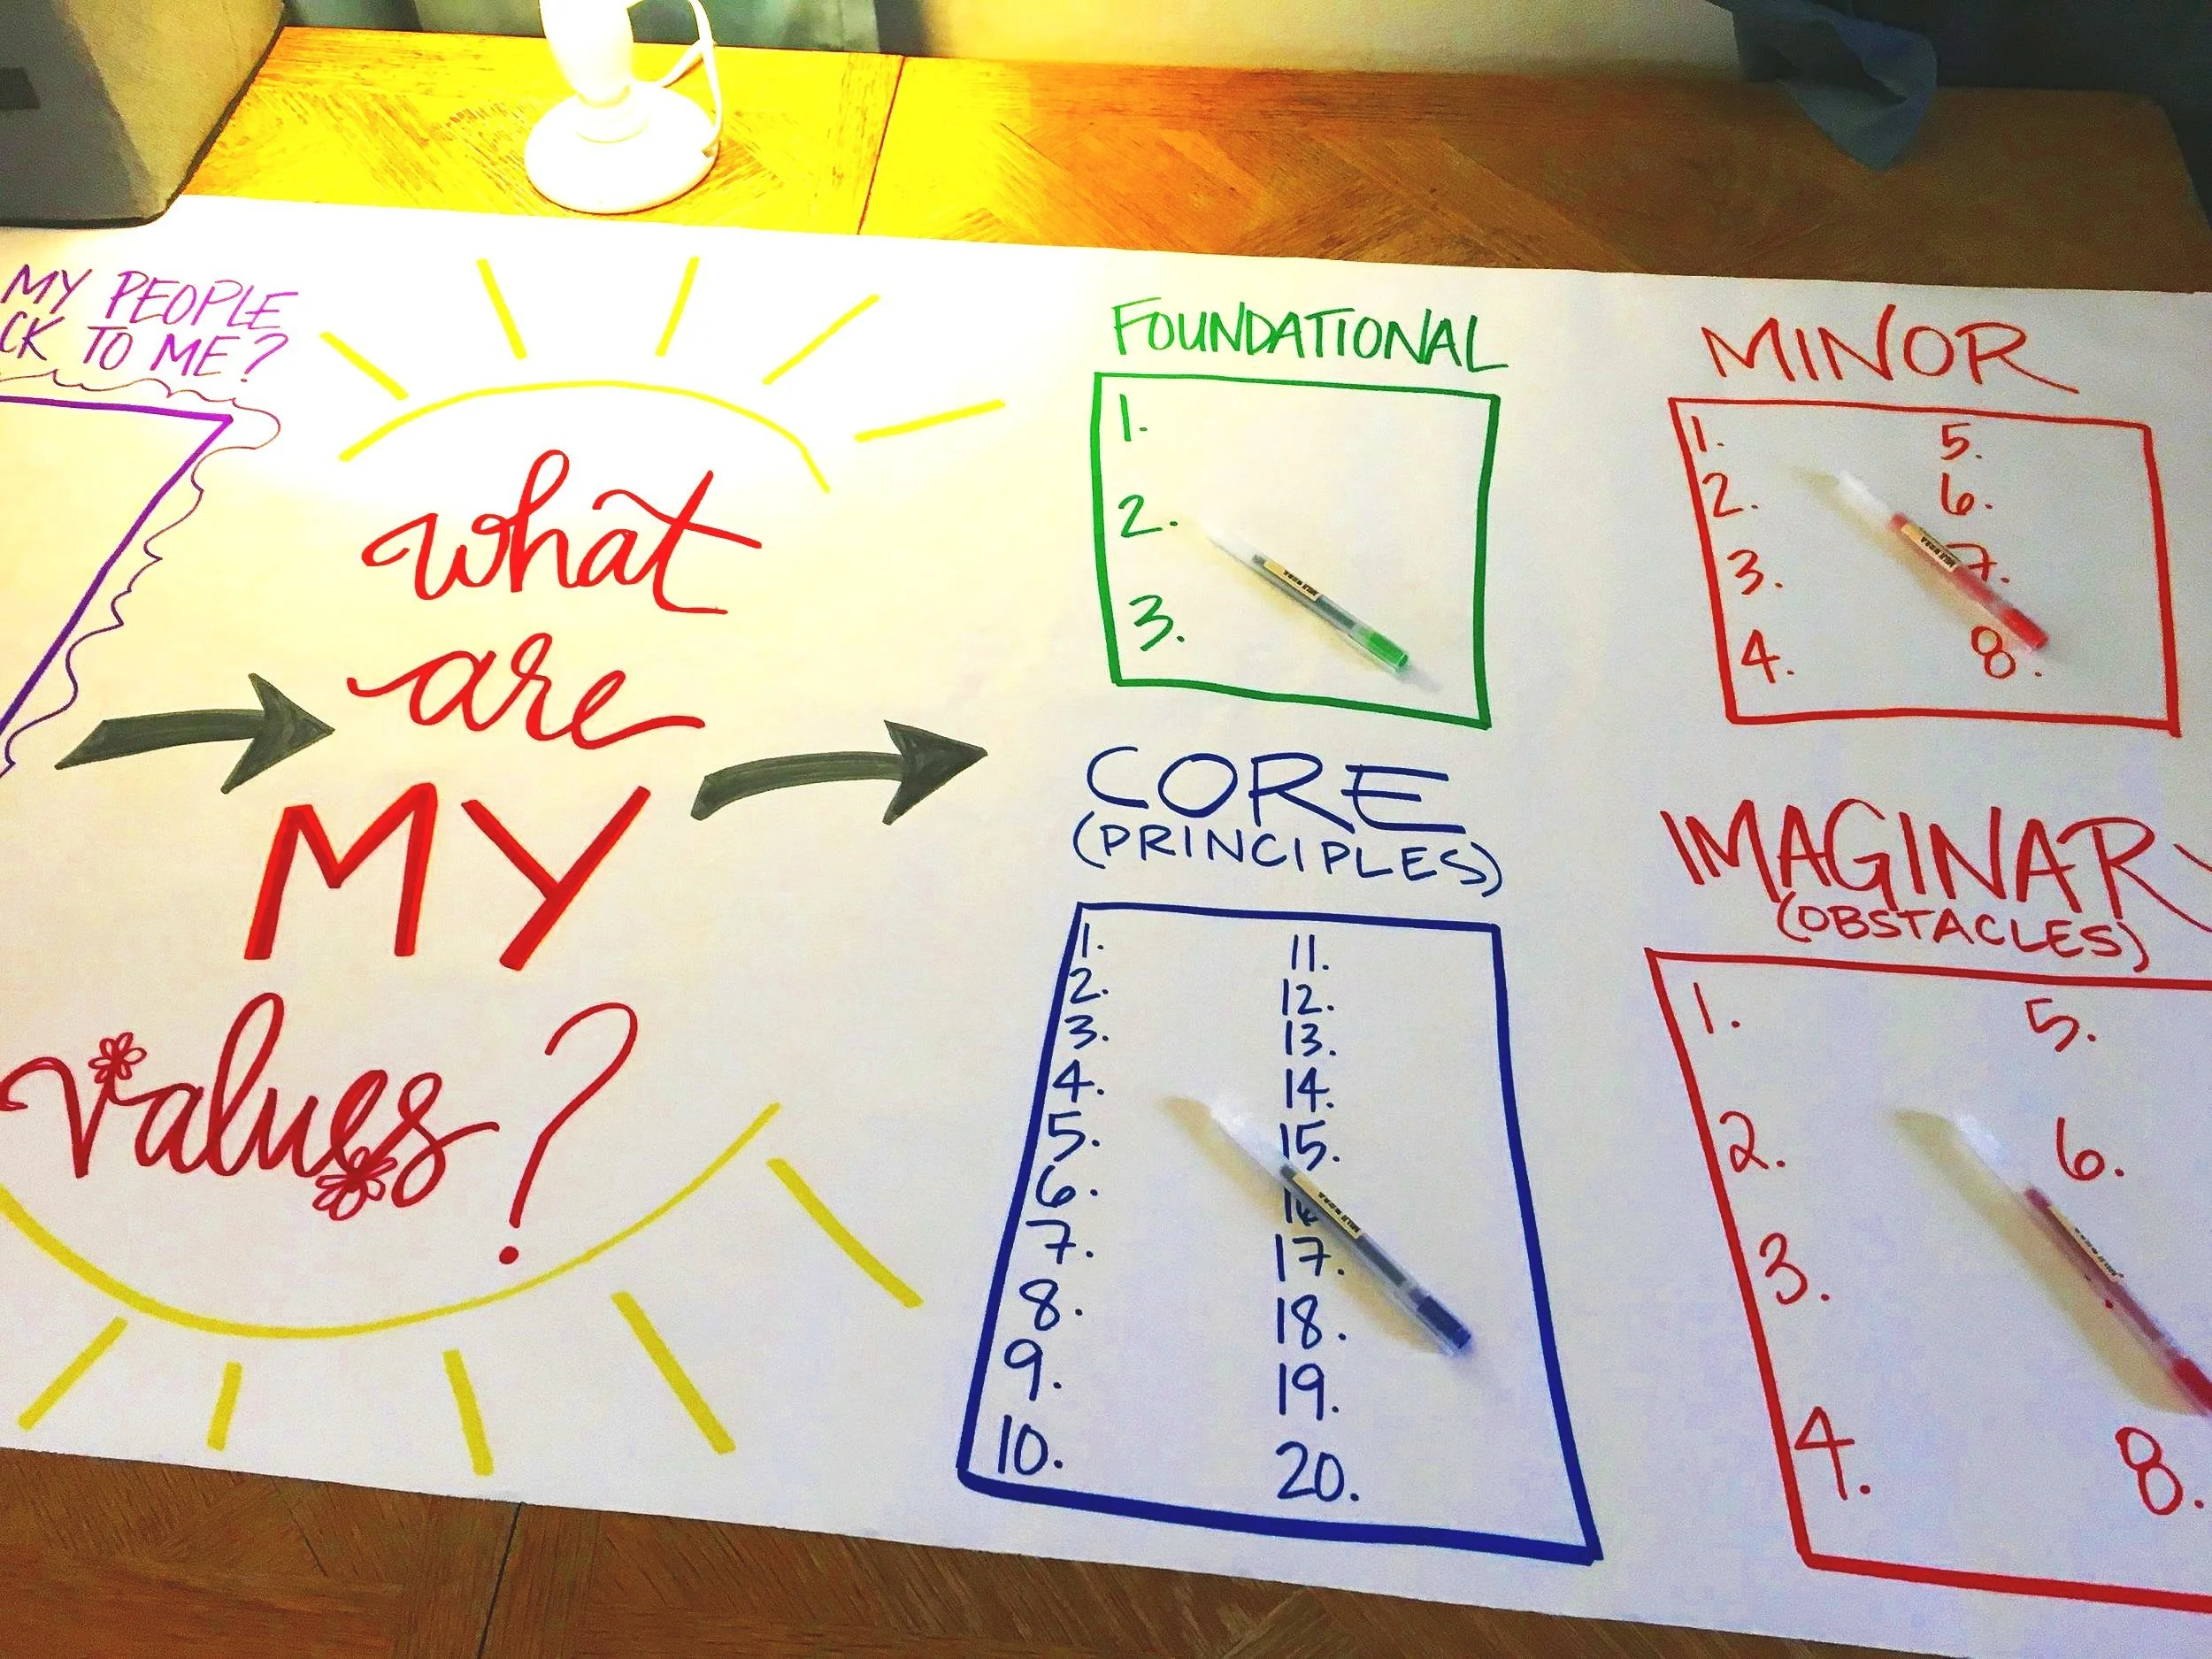 MY PEOPLE
CK TO ME?
what
are
MY
values?
FOUNDATIONAL
1.
2.
3.
MINOR
1.
2.
3.
4.
5.
6.
7.
8.
CORE
(PRINCIPLES)
1.
2.
3.
4.
5.
6.
7.
8.
9.
10.
11.
12.
13.
14.
15.
16
17.
18.
19.
20.
IMAGINARY
(OBSTACLES)
1.
2.
3.
4.
5.
6.
8.